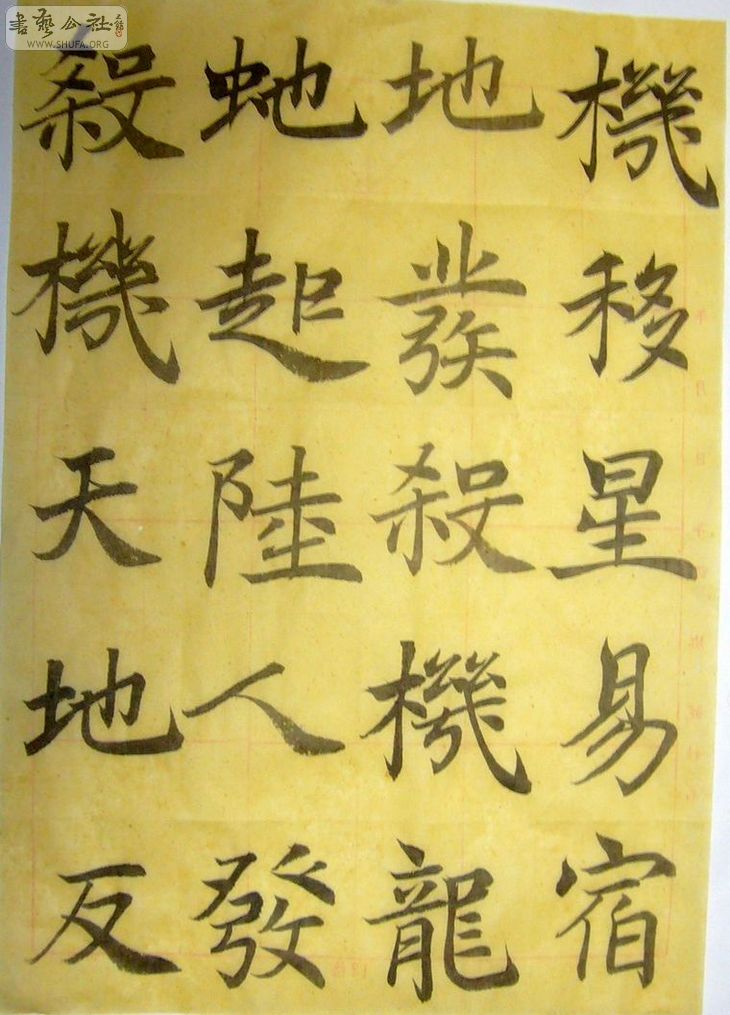 機移星易宿
地發殺機龍
虵起陸人發
殺機天地反
書藝公社
WWW.SHUFA.ORG